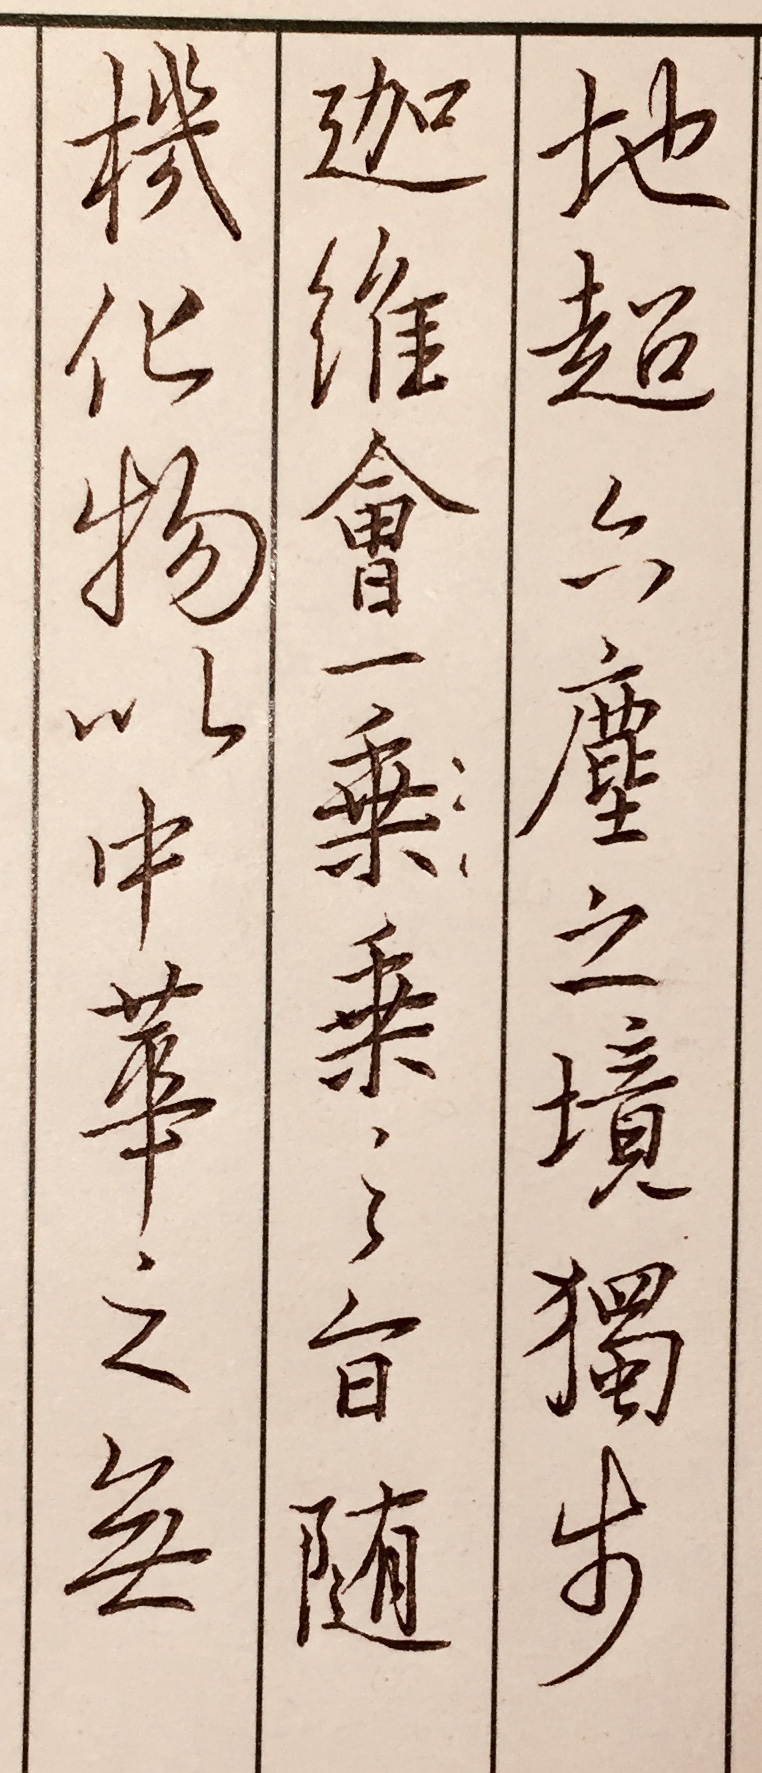 地超六塵之境獨步
迦維會一乗乗之旨随
機化物以中華之無